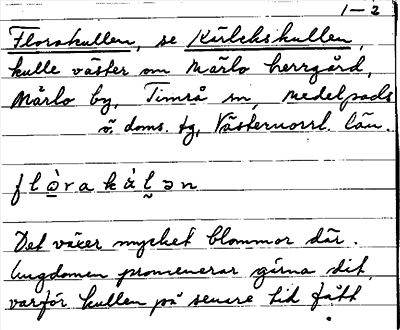 1-2
Florakullen, se Kärlekskullen,
kulle väster om Märlo herrgård,
Märlo by, Timrå sn, Medelpads
ö. doms. tg, Västernorrl. län.
flə̀rakàḷən
Det växer mycket blommor där.
Ungdomen promenerar gärna dit,
varför kullen på senare tid fått